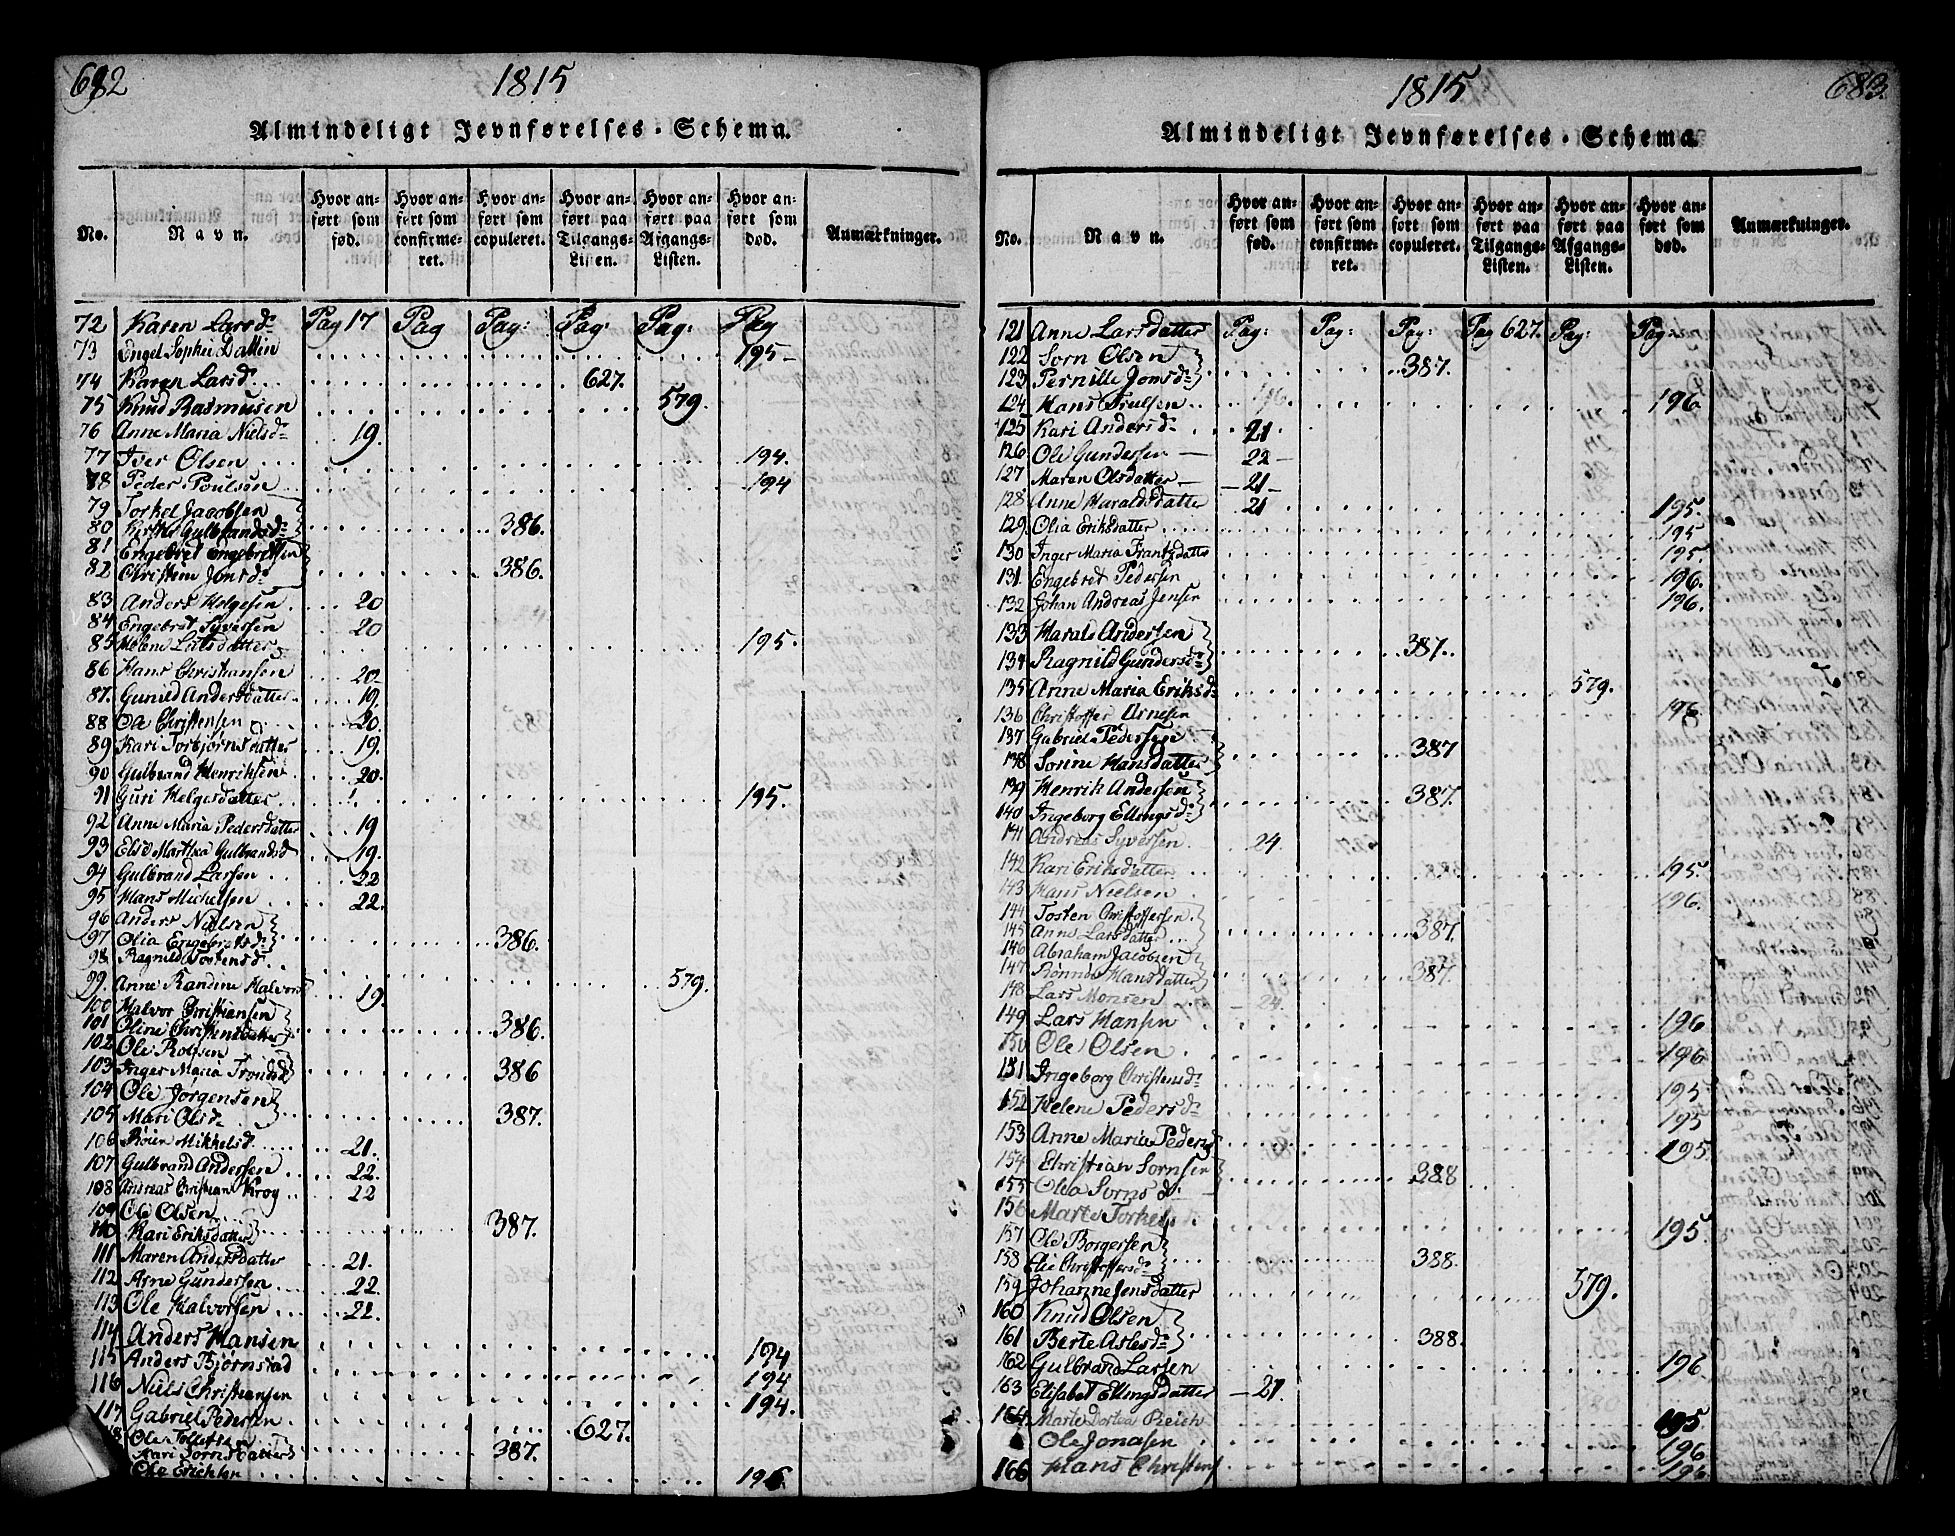 682
1815
Almindeligt Jevnførelses-Schema.
No. Navn. Hvor anført som fød. Hvor anført som confirmeret. Hvor anført som copuleret. Hvor anført paa Tilgangs-Listen. Hvor anført paa Afgangs-Listen. Hvor anført som død. Anmærkninger.
72 Karen Larsd. Pag 17 Pag Pag: Pag: Pag: Pag
73 Engel Sophie Dattin 195
74 Karen Larsd. 627.
75 Knud Rasmusen 579.
76 Anne Maria Nielsd. 19.
77 Iver Olsen 194.
78 Peder Poulsen 194
79 Torkel Jacobsen
80 Kirsti Gulbrandsd. 386.
81 Engebret Engebretsen
82 Christine Jonsd. 386.
83 Anders Helgesen 20
84 Engebret Syversen 20
85 Helene Larsdatter 195.
86 Hans Christiansen 22
87. Gunild Andersdatter 19.
88 Ole Christensen 20.
89 Kari Torbjørnsdatter 19.
90 Gulbrand Henriksen 20.
91 Guri Helgesdatter 195.
92 Anne Maria Pedersdatter 19
93 Else Marthea Gulbrandsd 19.
94 Gulbrand Larsen 22
95 Hans Michelsen 22.
96 Anders Nielsen
97 Olia Engebretsd. 386.
98 Ragnild Tostensd. 579.
99 Anne Randine Halvors 19.
100 Halvor Christiansen
101 Oline Christensdatter 386.
102 Ole Rolfsen
103 Inger Maria Trondsd 386
104 Ole Jørgensen
105 Mari Olsd. 387.
106 Røien Mikkelsd. 21.
107 Gulbrand Andersen 22.
108 Andreas Christian Krog 22
109 Ole Olsen
110 Kari Eriksdatter 387.
111 Maren Andersdatter 21.
112 Arne Gundersen 22
113 Ole Halvorsen 22.
114 Anders Hansen 194
115 Anders Bjørnstad 194
116 Niels Christiansen 194.
117 Gabriel Pedersen 627.
118 Ole Tollefsen
Kari Sornsdatter 387.
Ole Erichsen 196
683
1815
Almindeligt Jevnførelses-Schema
No. Navn. Hvor anført som fød. Hvor anført som confirmeret. Hvor anført som copuleret. Hvor anført paa Tilgangs-Listen. Hvor anført paa Afgangs-Listen. Hvor anført som død. Anmærkninger.
121 Anne Larsdatter Pag: Pag: Pag: Pag 627. Pag: Pag:
122 Sorn Olsen
123 Pernille Jonsd. 387.
124 Hans Trulsen 196
125 Kari Andersd. 21
126 Ole Gundersen 22
127 Maren Olsdatter 21
128 Anne Haraldsdatter 21 195.
129. Olia Eriksdatter 195
130 Inger Maria Frantzdatter 195.
131. Engebret Pedersen 196.
132 Johan Andreas Jensen 196.
133 Harald Andersen
134 Ragnild Gundersd. 387.
135 Anne Maria Eriksd. 579.
136 Christoffer Arnesen 196
137 Gabriel Pedersen
138 Sorine Hansdatter 387
139 Henrik Andersen
140 Ingeborg Ellingsd. 387.
141 Andreas Syversen 24.
142 Kari Eriksdatter 195.
143 Hans Nielsen 196.
144 Tosten Christoffersen
145 Anne Larsdatter 387.
146 Abraham Jacobsen
147 Rønnde Hansdatter 387.
148 Lars Monsen 24.
149 Lars Hansen 196
150 Ole Olsen 196
151 Ingeborg Christensd. 195
152 Helene Pedersd. 195
153 Anne Maria Peders 195.
154 Christian Sornsen
155 Olea Sornsd. 388
156 Marte Torkels 195.
157 Ole Borgersen
158 Elie Christoffersd. 388.
159 Johanne Jensdatter 579.
160 Knud Olsen
161 Berte Aslesd. 388.
162 Gulbrand Larsen 196
163 Elisabet Ellingsdatter 21.
164 Marte Dortea Reich 195.
Ole Jonasen 196
166 Hans Christens 196